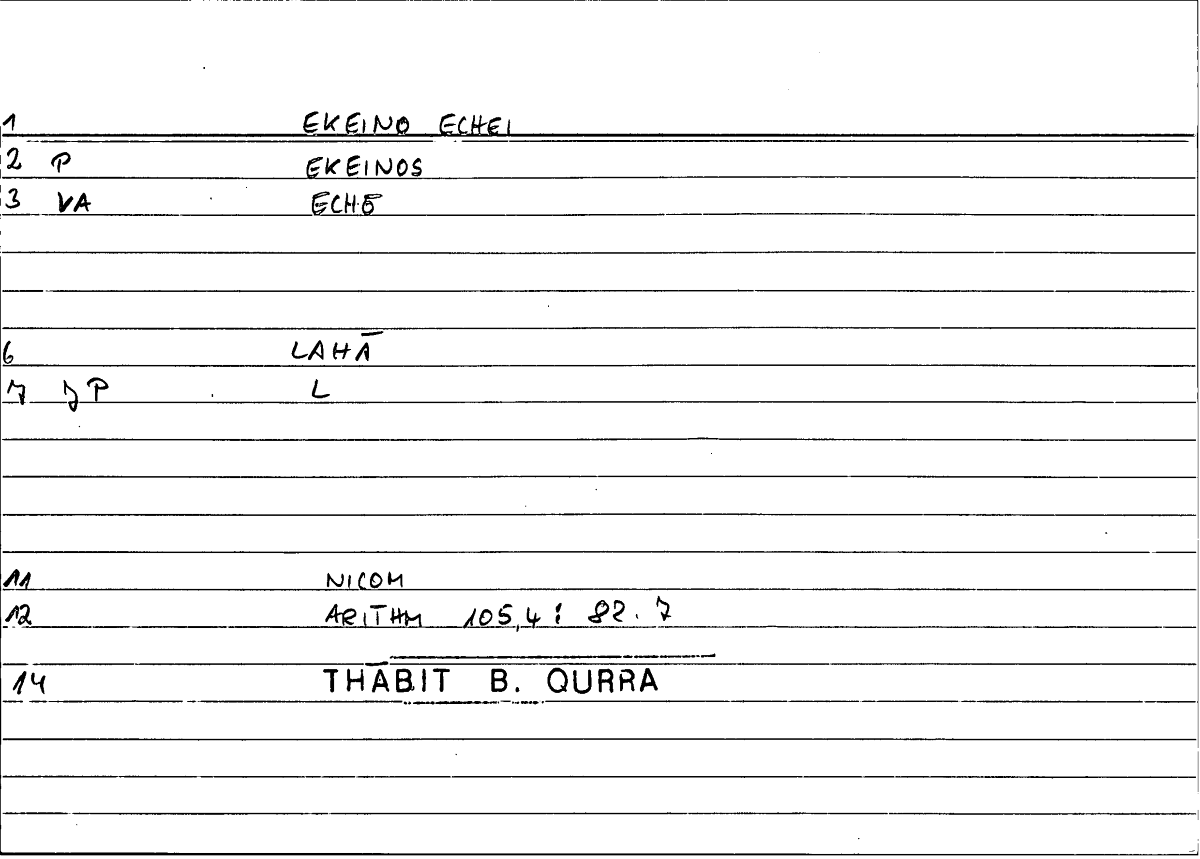 1 EKEINO ECHEI
2 P EKEINOS
3 VA ECHŌ
6 LAHĀ
7 JP L
11 NICOM
12 ARITHM 105,4: 82.7
14 THĀBIT B. QURRA